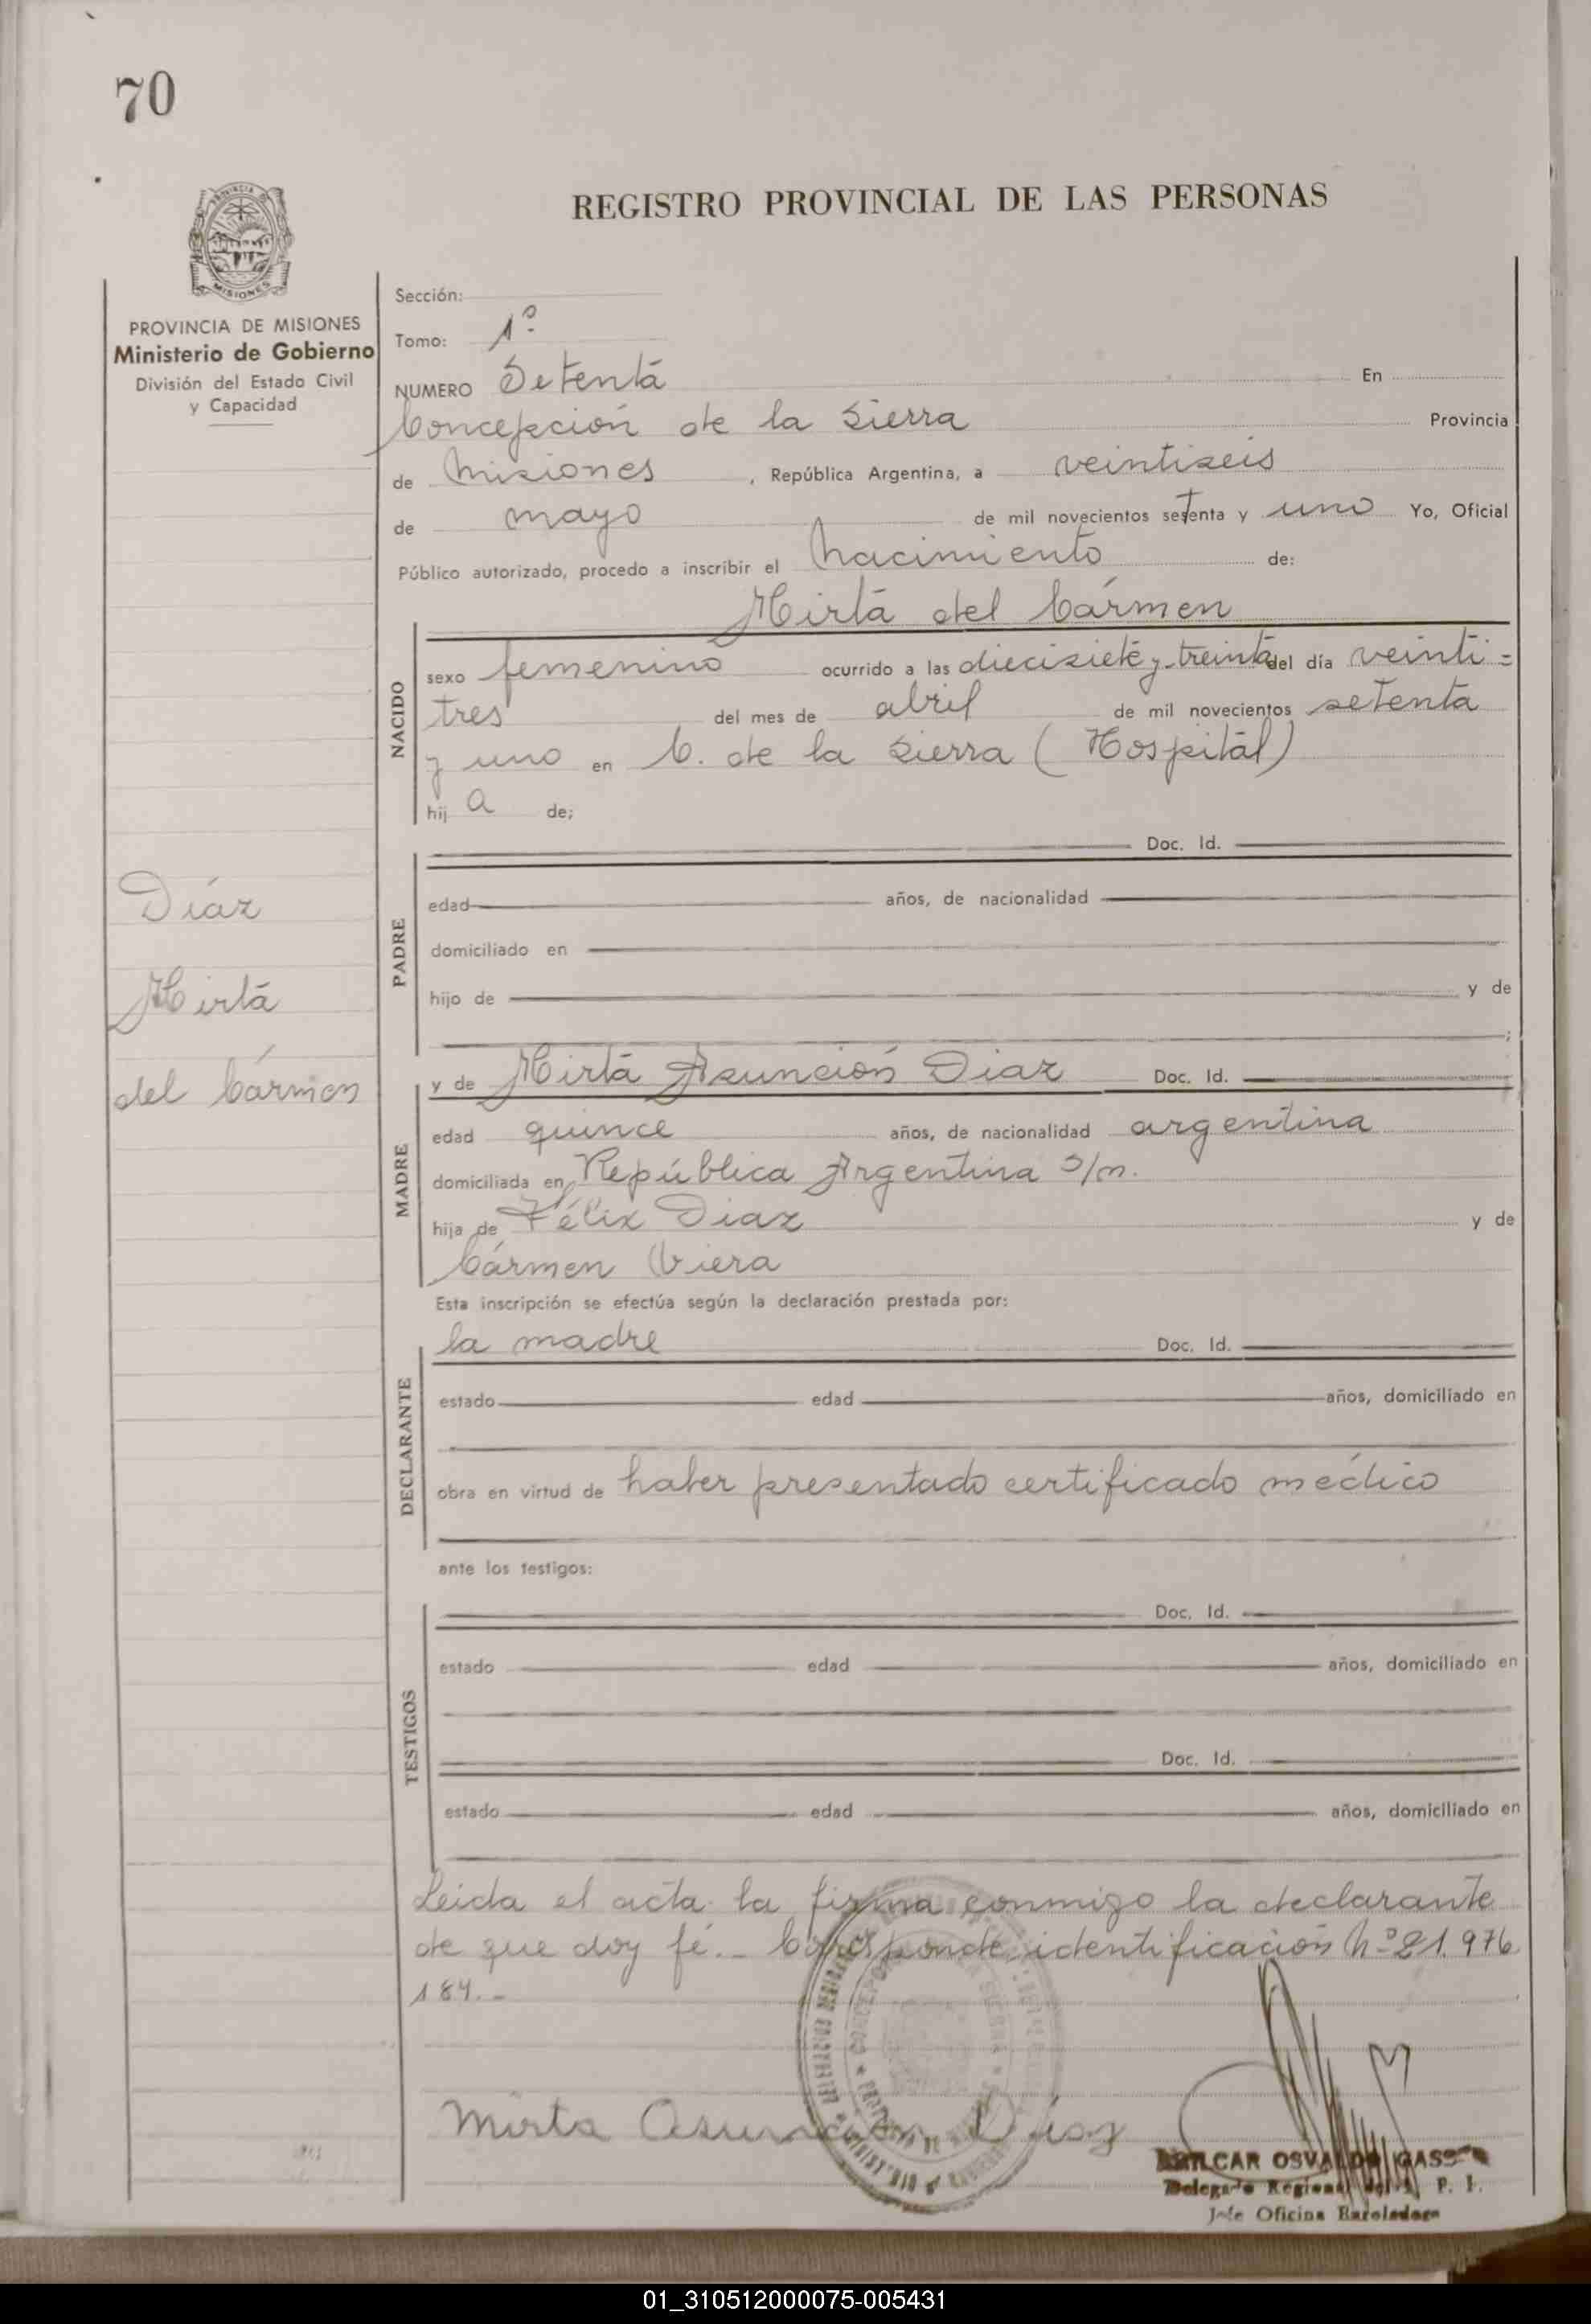 70
REGISTRO PROVINCIAL DE LAS PERSONAS
MISIONES
PROVINCIA DE MISIONES
Ministerio de Gobierno
División del Estado Civil
y Capacidad
Sección:
Tomo: 1º
NUMERO Setenta En
Concepción de la Sierra Provincia
de Misiones , República Argentina, a veintiseis
de mayo de mil novecientos setenta y uno Yo, Oficial
Público autorizado, procedo a inscribir el Nacimiento de:
Mirta del Cármen
NACIDO
sexo femenino ocurrido a las diecisiete y treinta del día veinti=
tres del mes de abril de mil novecientos setenta
y uno en C. de la Sierra (Hospital)
hij a de;
Doc. Id.
PADRE
edad años, de nacionalidad
domiciliado en
hijo de y de
;
Díaz
Mirta
del Cármen
MADRE
y de Mirta Asunción Diaz Doc. Id.
edad quince años, de nacionalidad argentina
domiciliada en República Argentina s/n.
hija de Félix Diaz y de
Cármen Viera
Esta inscripción se efectúa según la declaración prestada por:
DECLARANTE
la madre Doc. Id.
estado edad años, domiciliado en
obra en virtud de haber presentado certificado médico
ante los testigos:
TESTIGOS
Doc. Id.
estado edad años, domiciliado en
Doc. Id.
estado edad años, domiciliado en
Leida el acta la firma conmigo la declarante
de que doy fé.- Corresponde identificación Nº 21.976
184.-
Mirta Asuncion Díaz
OSVALDO
Delegado Regional del R. P. P.
Jefe Oficina
01_310512000075-005431